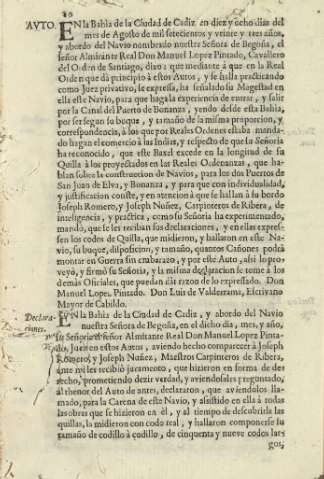 AUTO. EN la Bahia de la Ciudad de Cadiz en diez y ocho dias del
mes de Agosto de mil setecientos y veinte y tres años,
y abordo del Navio nombrado nuestra Señora de Begoña, el
señor Almirante Real Don Manuel Lopez Pintado, Cavallero
del Orden de Santiago, dixo: que mediante à que en la Real
Orden que dà principio à estos Autos, y se halla practicando
como Juez privativo, se expressa, ha señalado su Magestad en
ella este Navio, para que haga la experiencia de entrar, y salir
por la Canal del Puerto de Bonanza, yendo desde esta Bahia,
por ser segun su buque, y tamaño de la misma proporcion, y
correspondencia, à los que por Reales Ordenes estaba manda-
do hagan el comercio à las Indias, y respecto de que su Señoria
ha reconocido, que este Baxel excede en la longitud de su
Quilla à los proyectados en las Reales Ordenanzas, que ha-
blan sobre la construccion de Navios, para los dos Puertos de
San Juan de Elva, y Bonanza, y para que con individualidad,
y justificacion conste, y en atencion à que se hallan à su bordo
Joseph Romero, y Joseph Nuñez, Carpinteros de Ribera, de
inteligencia, y practica, como su Señoria ha experimentado,
mandò, que se les reciban sus declaraciones, y en ellas expres-
sen los codos de Quilla, que midieron, y hallaron en este Na-
vio, su buque, disposicion, y tamaño, quantos Cañones podrà
montar en Guerra sin embarazo, y por este Auto, assi lo pro-
veyò, y firmò su Señoria, y la misma declaracion se tome à los
demàs Oficiales, que puedan dàr razon de lo expressado. Don
Manuel Lopez Pintado. Don Luis de Valderrama, Escrivano
Mayor de Cabildo.
Declara-
ciones.
EN la Bahia de la Ciudad de Cadiz, y abordo del Navio
nuestra Señora de Begoña, en el dicho dia, mes, y año,
su Señoria el señor Almirante Real Don Manuel Lopez Pinta-
do, Juez en estos Autos, aviendo hecho comparecer à Joseph
Romero, y Joseph Nuñez, Maestros Carpinteros de Ribera,
ante mi les recibiò juramento, que hizieron en forma de de-
recho, prometiendo dezir verdad, y aviendoseles preguntado,
al thenor del Auto de antes, declararon, que aviendolos lla-
mado, para la Carena de este Navio, y assistido en ella à todas
las obras que se hizieron en èl, y al tiempo de descubrirla las
quillas, la midieron con codo real, y hallaron componerse su
tamaño de codillo à codillo, de cinquenta y nueve codos lar-
gos,